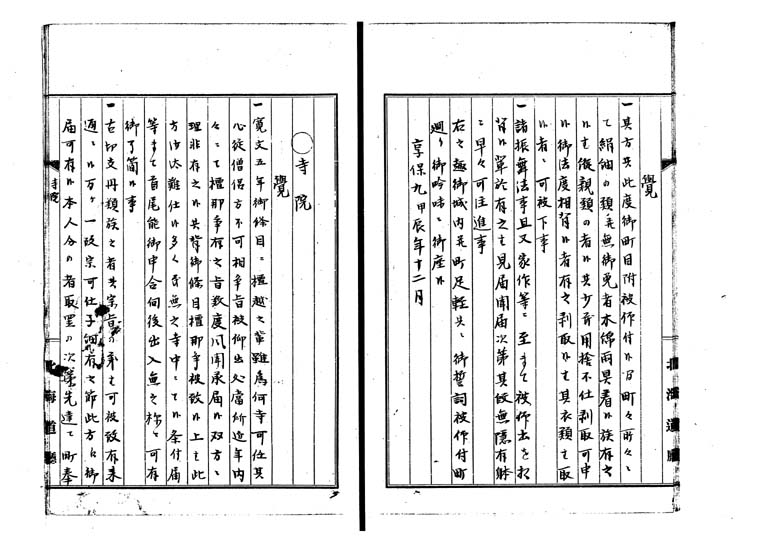 覺
一其方共此度御町目附被仰付候旨町々所々ニ
て絹紬の類無御免者木綿雨具着候族有之
候ハヽ縦親類の者候共少も用捨不仕剥取可申
候御法度相背候者有之剥取候ハヽ其衣類ハ取
候者ニ可被下事
一諸振舞法事且又家作等ニ至まて被仰出を相
背候輩於有之ハ見届聞届次第其段無隠有躰
ニ早々可注進事
右之趣御城内并町足軽共ニ御誓詞被仰付町
廻り御吟味ニ御座候
享保九甲辰年十二月
北海道廳
〇寺院
覺
一寛文五年御條目ニ檀越之輩雖為何寺可任其
心従僧侶方不可相争旨被仰出処當所近年内
々ニて檀那争有之旨致度々風聞承届候双方ニ
理非存之候共背御條目檀那争被致候上ハ此
方沙汰難仕候多くも無之寺中ニて候条付届
等まて首尾能御申合向後出入無之様ニ可有
御了簡候事
一古切支丹類族之者共宗旨の事ハ可被致存来
通ニ候万々一改宗可仕子細有之節此方江御
届可有候本人分の者取置の次第先達て町奉
寺院
北海道廳